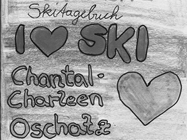 Skitagebuch
I ♥ SKI
Chantal-
Charleen
Oschatz